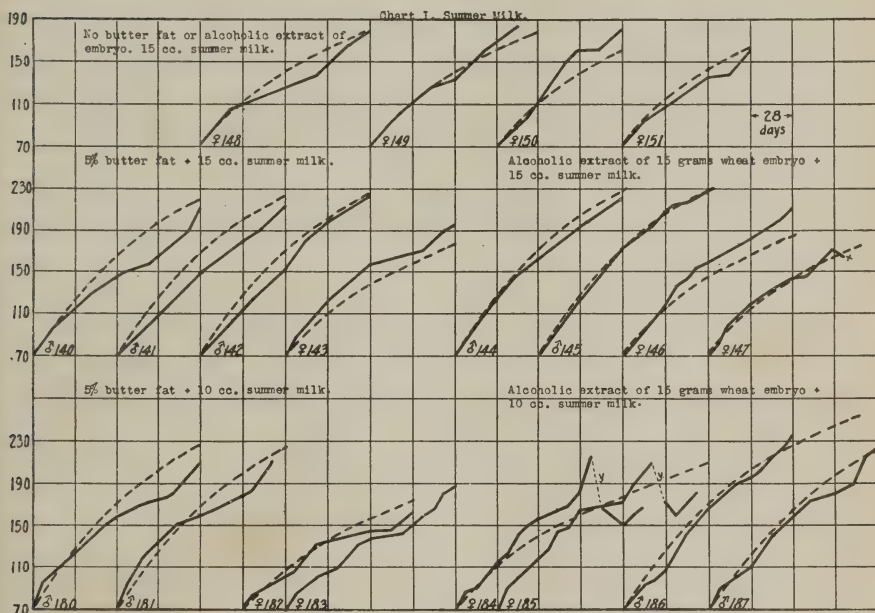 Chart I. Summer Milk.
190
No butter fat or alcoholic extract of
embryo. 15 cc. summer milk.
150
110
28
days
70
♀148
♀149
♀150
♀151
5% butter fat + 15 cc. summer milk.
Alcoholic extract of 15 grams wheat embryo +
15 cc. summer milk.
230
190
150
110
x
70
♂140
♂141
♂142
♀143
♂144
♂145
♀146
♀147
5% butter fat + 10 cc. summer milk.
Alcoholic extract of 15 grams wheat embryo +
10 cc. summer milk.
230
y
y
190
150
110
70
♂180
♂181
♀182
♀183
♀184
♀185
♂186
♂187